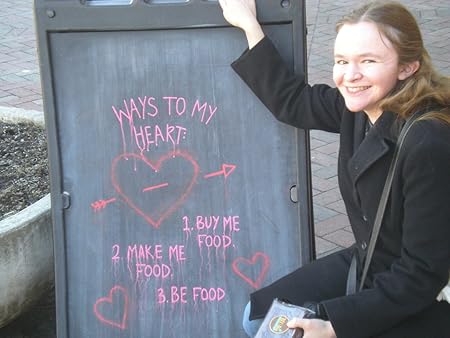 WAYS TO MY
HEART:
1. BUY ME
FOOD.
2. MAKE ME
FOOD.
3. BE FOOD